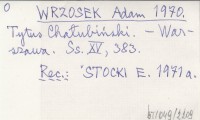 O WRZOSEK Adam 1970.
Tytus Chałubiński. - War-
szawa. Ss. XV, 383.
Rec.: STOCKI E. 1971a.